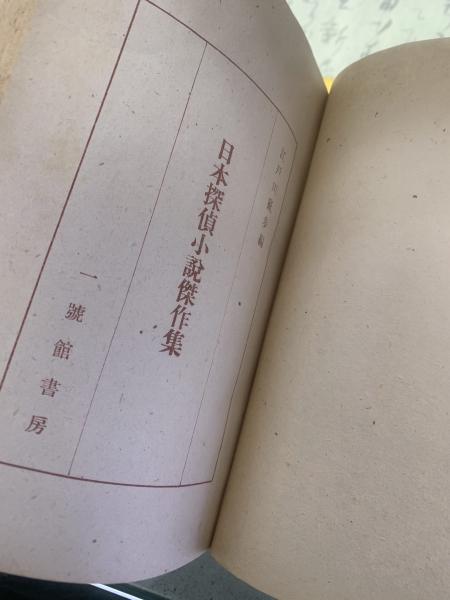 江戸川亂歩編
日本探偵小說傑作集
一號館書房